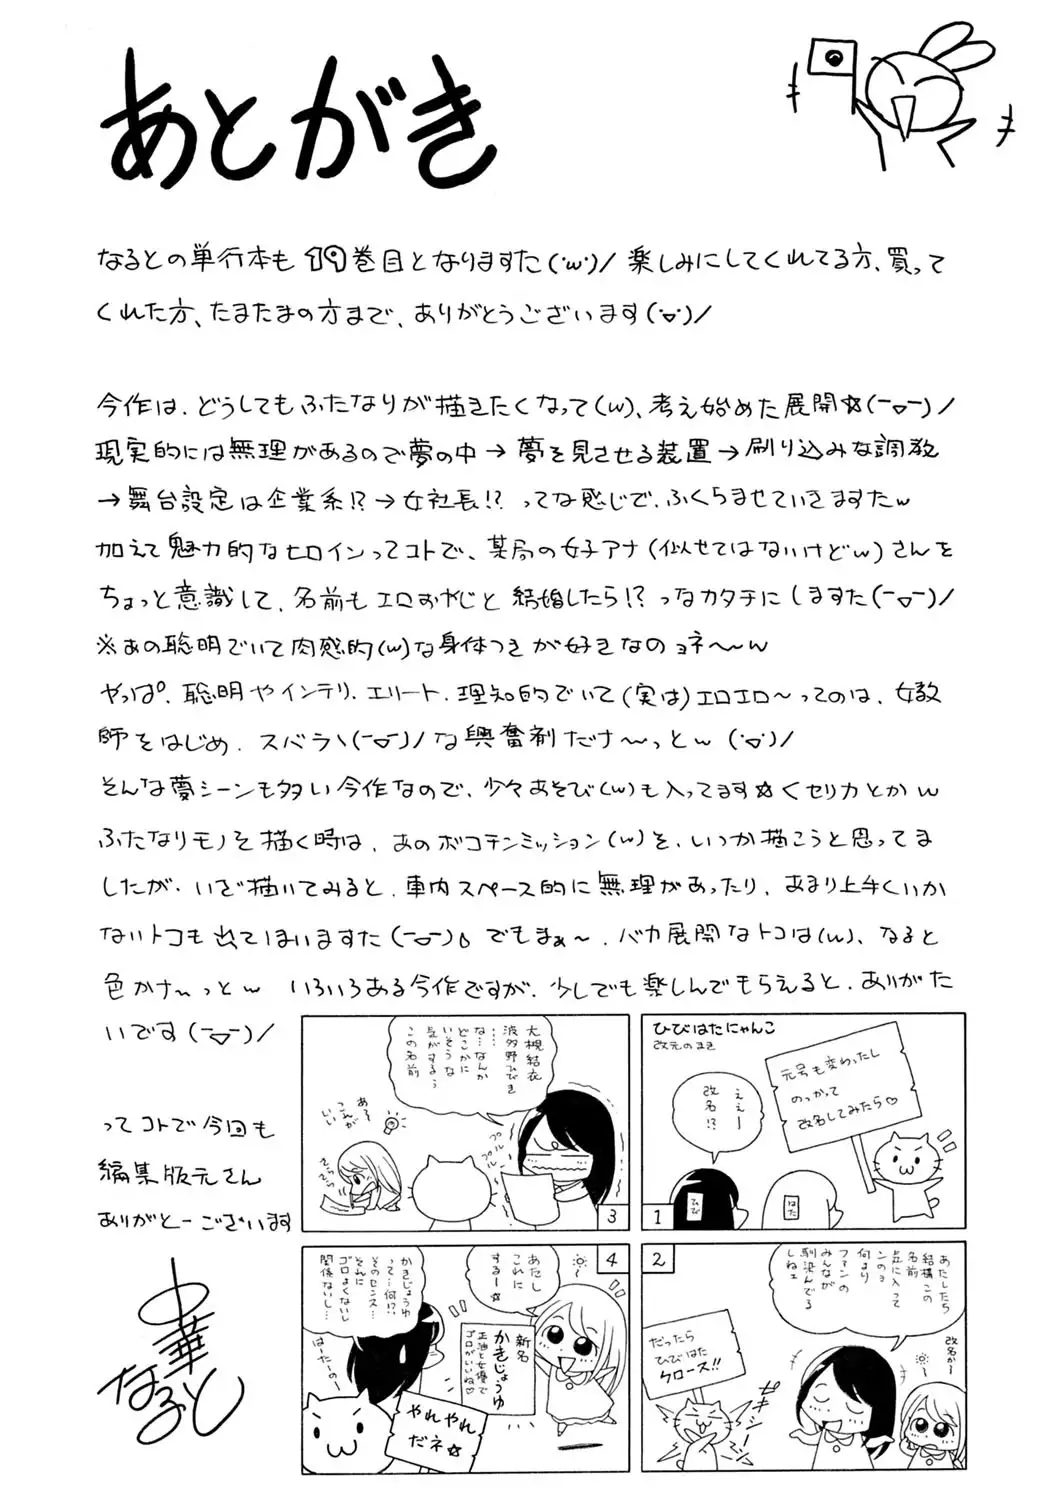 あとがき
なるとの単行本も19巻目となりますた(･ω･)/ 楽しみにしてくれてる方、買って
くれた方、たまたまの方まで、ありがとうございます(･▽･)/
今作は、どうしてもふたなりが描きたくなって(w)、考え始めた展開☆(ー▽ー)/
現実的には無理があるので夢の中→夢を見させる装置→刷り込みな調教
→舞台設定は企業系!?→女社長!? ってな感じで、ふくらませていきますたw
加えて魅力的なヒロインってコトで、某局の女子アナ(似せてはないけどw)さんを
ちょっと意識して、名前もエロおやじと結婚したら!? っなカタチにしますた(ー▽ー)/
※あの聡明でいて肉感的(w)な身体つきが好きなのョネ〜〜w
やっぱ、聡明やインテリ、エリート、理知的でいて(実は)エロエロ〜ってのは、女教
師をはじめ、スバラヽ(ー▽ー)/な興奮剤だナ〜っとw (･▽･)/
そんな夢シーンも多い今作なので、少々あそび(w)も入ってます☆くセリカとかw
ふたなりモノを描く時は、あのボコチンミッション(w)を、いつか描こうと思ってま
したが、いざ描いてみると、車内スペース的に無理があったり、あまり上手くいか
ないトコも出てしまいますた(ー▽ー)。でもまぁ〜、バカ展開なトコは(w)、なると
色かナ〜っとw いろいろある今作ですが、少しでも楽しんでもらえると、ありがた
いです(ー▽ー)/
ってコトで今回も
編集版元さん
ありがとーございます
中華
なると
ひびはたにゃんこ
改元のまき
元号も変わったし
のっかって
改名してみたら♡
ええー
改名!?
ひび
はた
1
あたしたち
結構この
名前
点に入って
ンのョ
何より
ファンの
みんなが
馴染んでる
しねェ
改名かー
だったら
ひびはた
クロース!!
2
大槻結衣
波多野ひびき
……
な…なんか
どこかに
いそうな
気がするぅ
この名前
プル
プル
プル
ある
こんが
いい
さらさら
3
あたし
これに
するー☆
新名
かきじょうゆ
正油と女優で
ゴロがいいね♡
かきじょうゆ
って…何!?
そのセンス…
それに
ゴロよくないし
関係ないし…
はーたのー
やれやれ
だネ☆
4